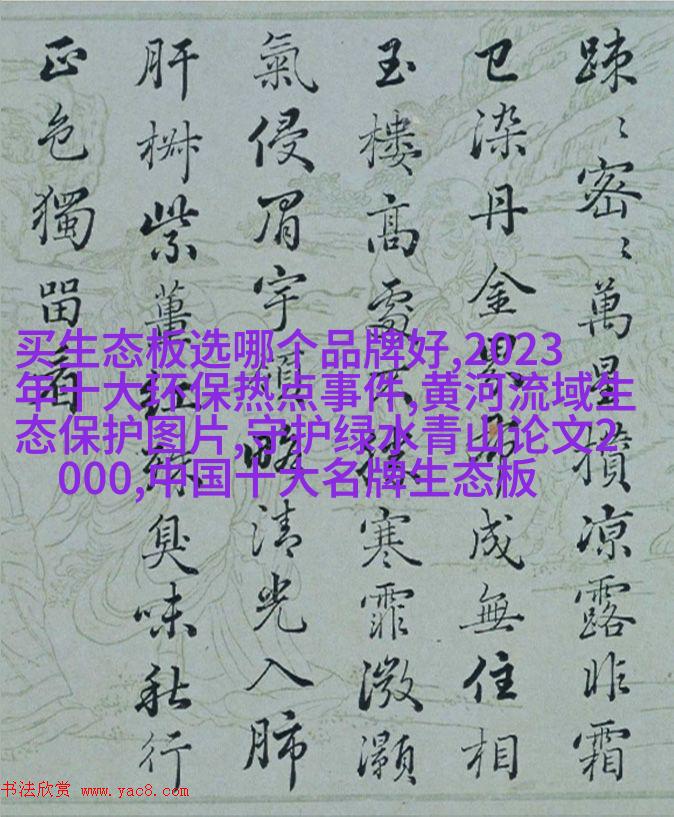 踈〻密〻萬星攢凉露非霜
已染丹金粟布成無住相
玉樓高處不勝寒霏微灝
氣侵眉宇領略清光入肺
肝紫紅臭味秋行
正色獨留看
买生态板选哪个品牌好,2023
年十大环保热点事件,黄河流域生
态保护图片,守护绿水青山论文2
000,中国十大名牌生态板
书法欣赏 www.yac8.com